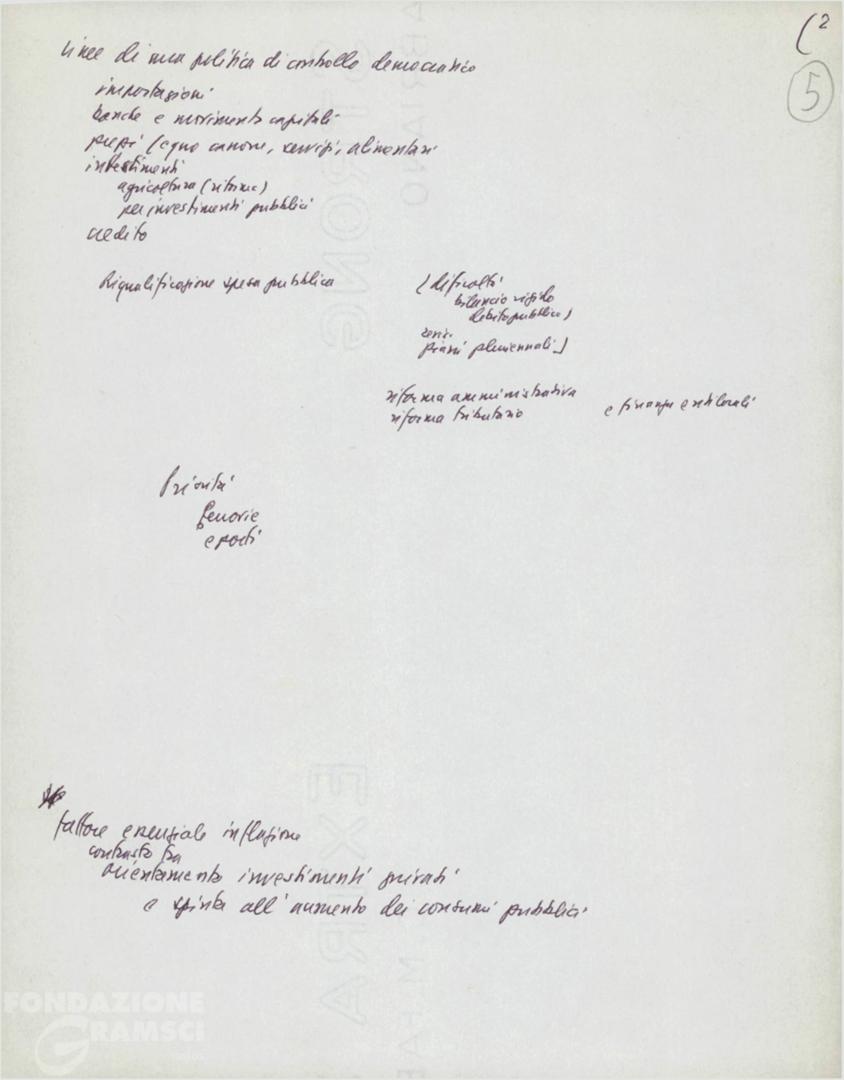 (2
5
linee di una politica di controllo democratico
importazioni
banche e movimento capitali
prezzi (equo canone, servizi, alimentari
investimenti
agricoltura (riforma)
per investimenti pubblici
credito
Riqualificazione spesa pubblica
(difficoltà
bilancio rigido
debito pubblico)
piani pluriennali)
riforma amministrativa
riforma tributaria
e finanza enti locali
Priorità
ferrovie
e porti
fattore essenziale inflazione
contrasto fra
orientamento investimenti privati
e spinta all'aumento dei consumi pubblici
FABRIANO
STRONG
EXTRA
FONDAZIONE
GRAMSCI